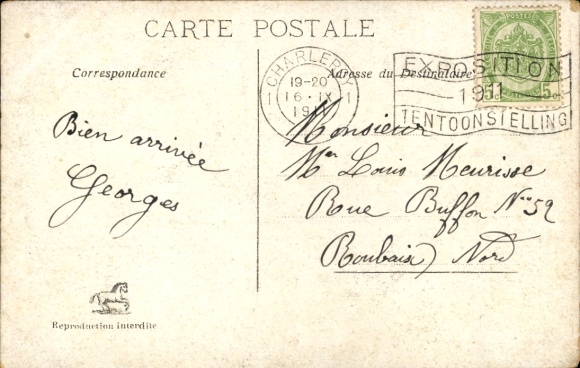 CARTE POSTALE
Correspondance
Adresse du Destinataire
CHARLEROY
1 1
19-20
16·IX
1911
EXPOSITION
1911
TENTOONSTELLING
POSTES
5c. 5c.
Bien arrivée
Georges
Monsieur
Mer Louis Meurisse
Rue Buffon No 52
Roubaix) Nord
Reproduction interdite